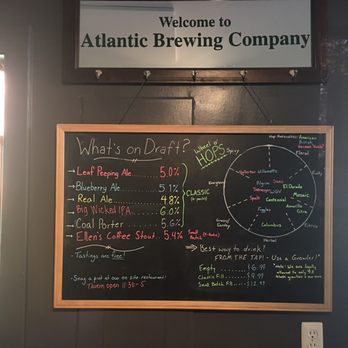 Welcome to
Atlantic Brewing Company
What's on Draft?
Leaf Peeping Ale 5.0%
Blueberry Ale 5.1%
Real Ale 4.8%
Big Wicked IPA 6.0%
Coal Porter 5.6%
Ellen's Coffee Stout 5.4%
CLASSIC
Small Batch
- Tastings are free!
- Snag a pint at our on site restaurant!
Tavern open 11:30-5
Wheel o' HOPS
Spicy
Floral
Fruity
Citrus
Evergreen
Herbal
Hallertau
Willamette
El Dorado
Mosaic
Centennial
Amarillo
Citra
Fuggles
Columbus
Best way to drink?
FROM THE TAP! - Use a Growler!
Empty $6.99
Classic Fill $9.99
Small Batch Fill $12.99